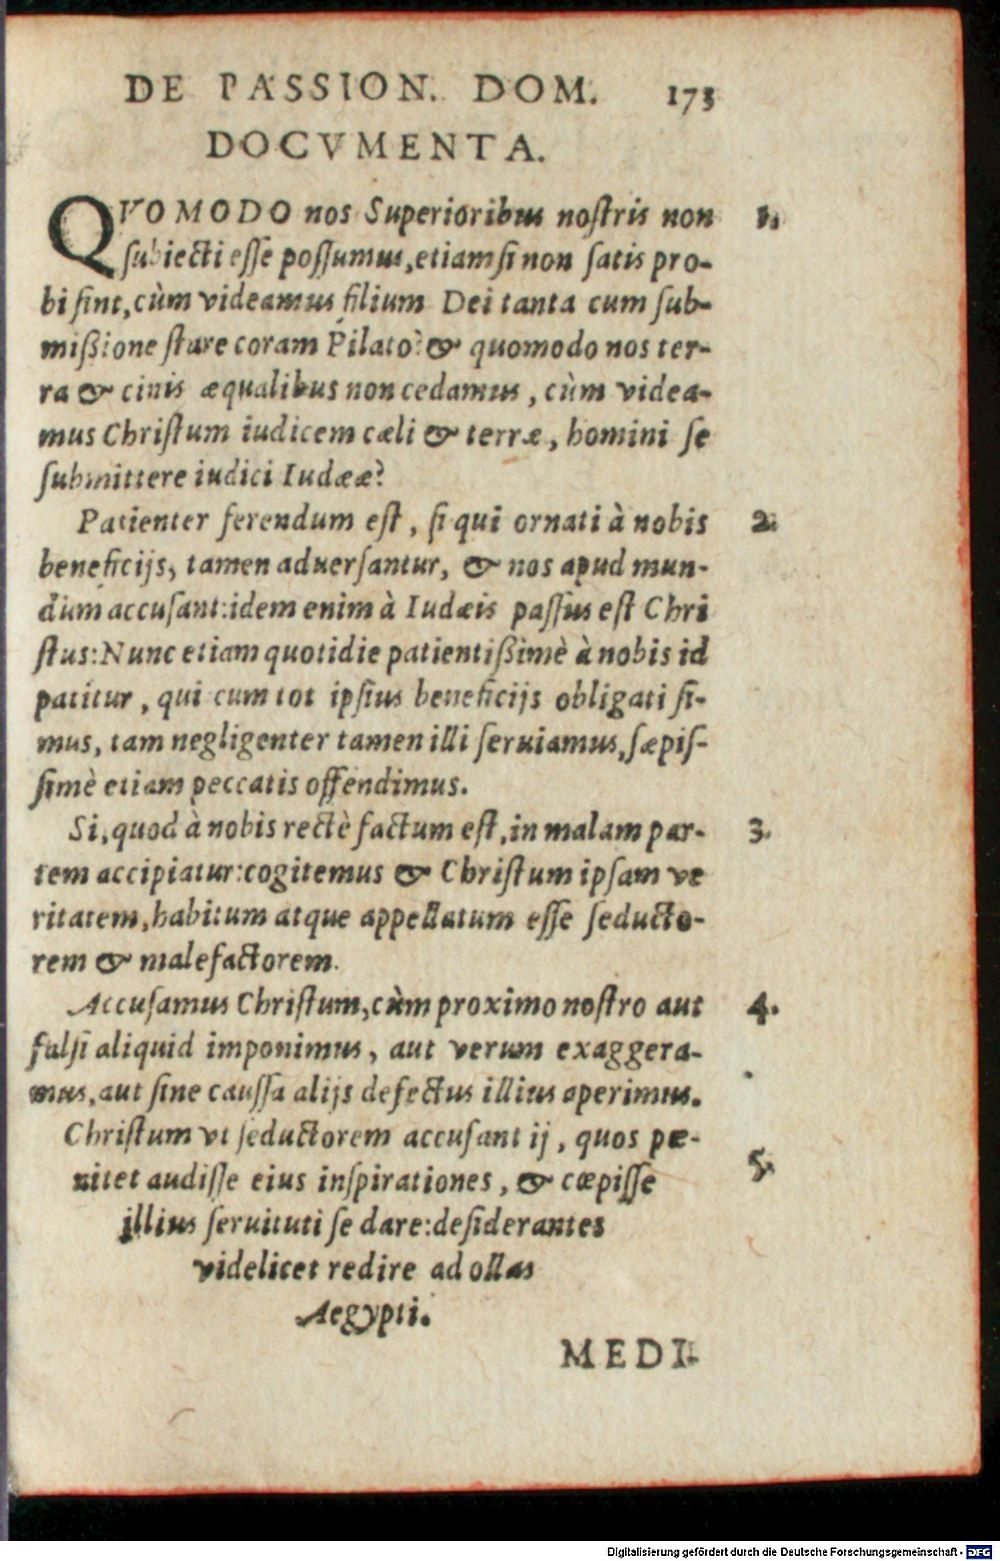 DE PASSION. DOM. 173
DOCVMENTA.
QVOMODO nos Superioribus nostris non 1.
subiecti esse possumus, etiamsi non satis pro-
bi sint, cùm videamus filium Dei tanta cum sub-
mißione stare coram Pilato? & quomodo nos ter-
ra & cinis æqualibus non cedamus, cùm videa-
mus Christum iudicem cæli & terræ, homini se
submittere iudici Iudææ?
Patienter ferendum est, si qui ornati à nobis 2.
beneficijs, tamen aduersantur, & nos apud mun-
dum accusant: idem enim à Iudæis passus est Chri
stus: Nunc etiam quotidie patientißimè à nobis id
patitur, qui cum tot ipsius beneficijs obligati si-
mus, tam negligenter tamen illi seruiamus, sæpis-
simè etiam peccatis offendimus.
Si, quod à nobis rectè factum est, in malam par- 3.
tem accipiatur: cogitemus & Christum ipsam ve
ritatem, habitum atque appellatum esse seducto-
rem & malefactorem.
Accusamus Christum, cùm proximo nostro aut 4.
falsi aliquid imponimus, aut verum exaggera-
mus, aut sine caussa alijs defectus illius aperimus.
Christum vt seductorem accusant ij, quos pœ-
nitet audisse eius inspirationes, & cœpisse 5.
illius seruituti se dare: desiderantes
videlicet redire ad ollas
Aegypti.
MEDI-
Digitalisierung gefördert durch die Deutsche Forschungsgemeinschaft - DFG